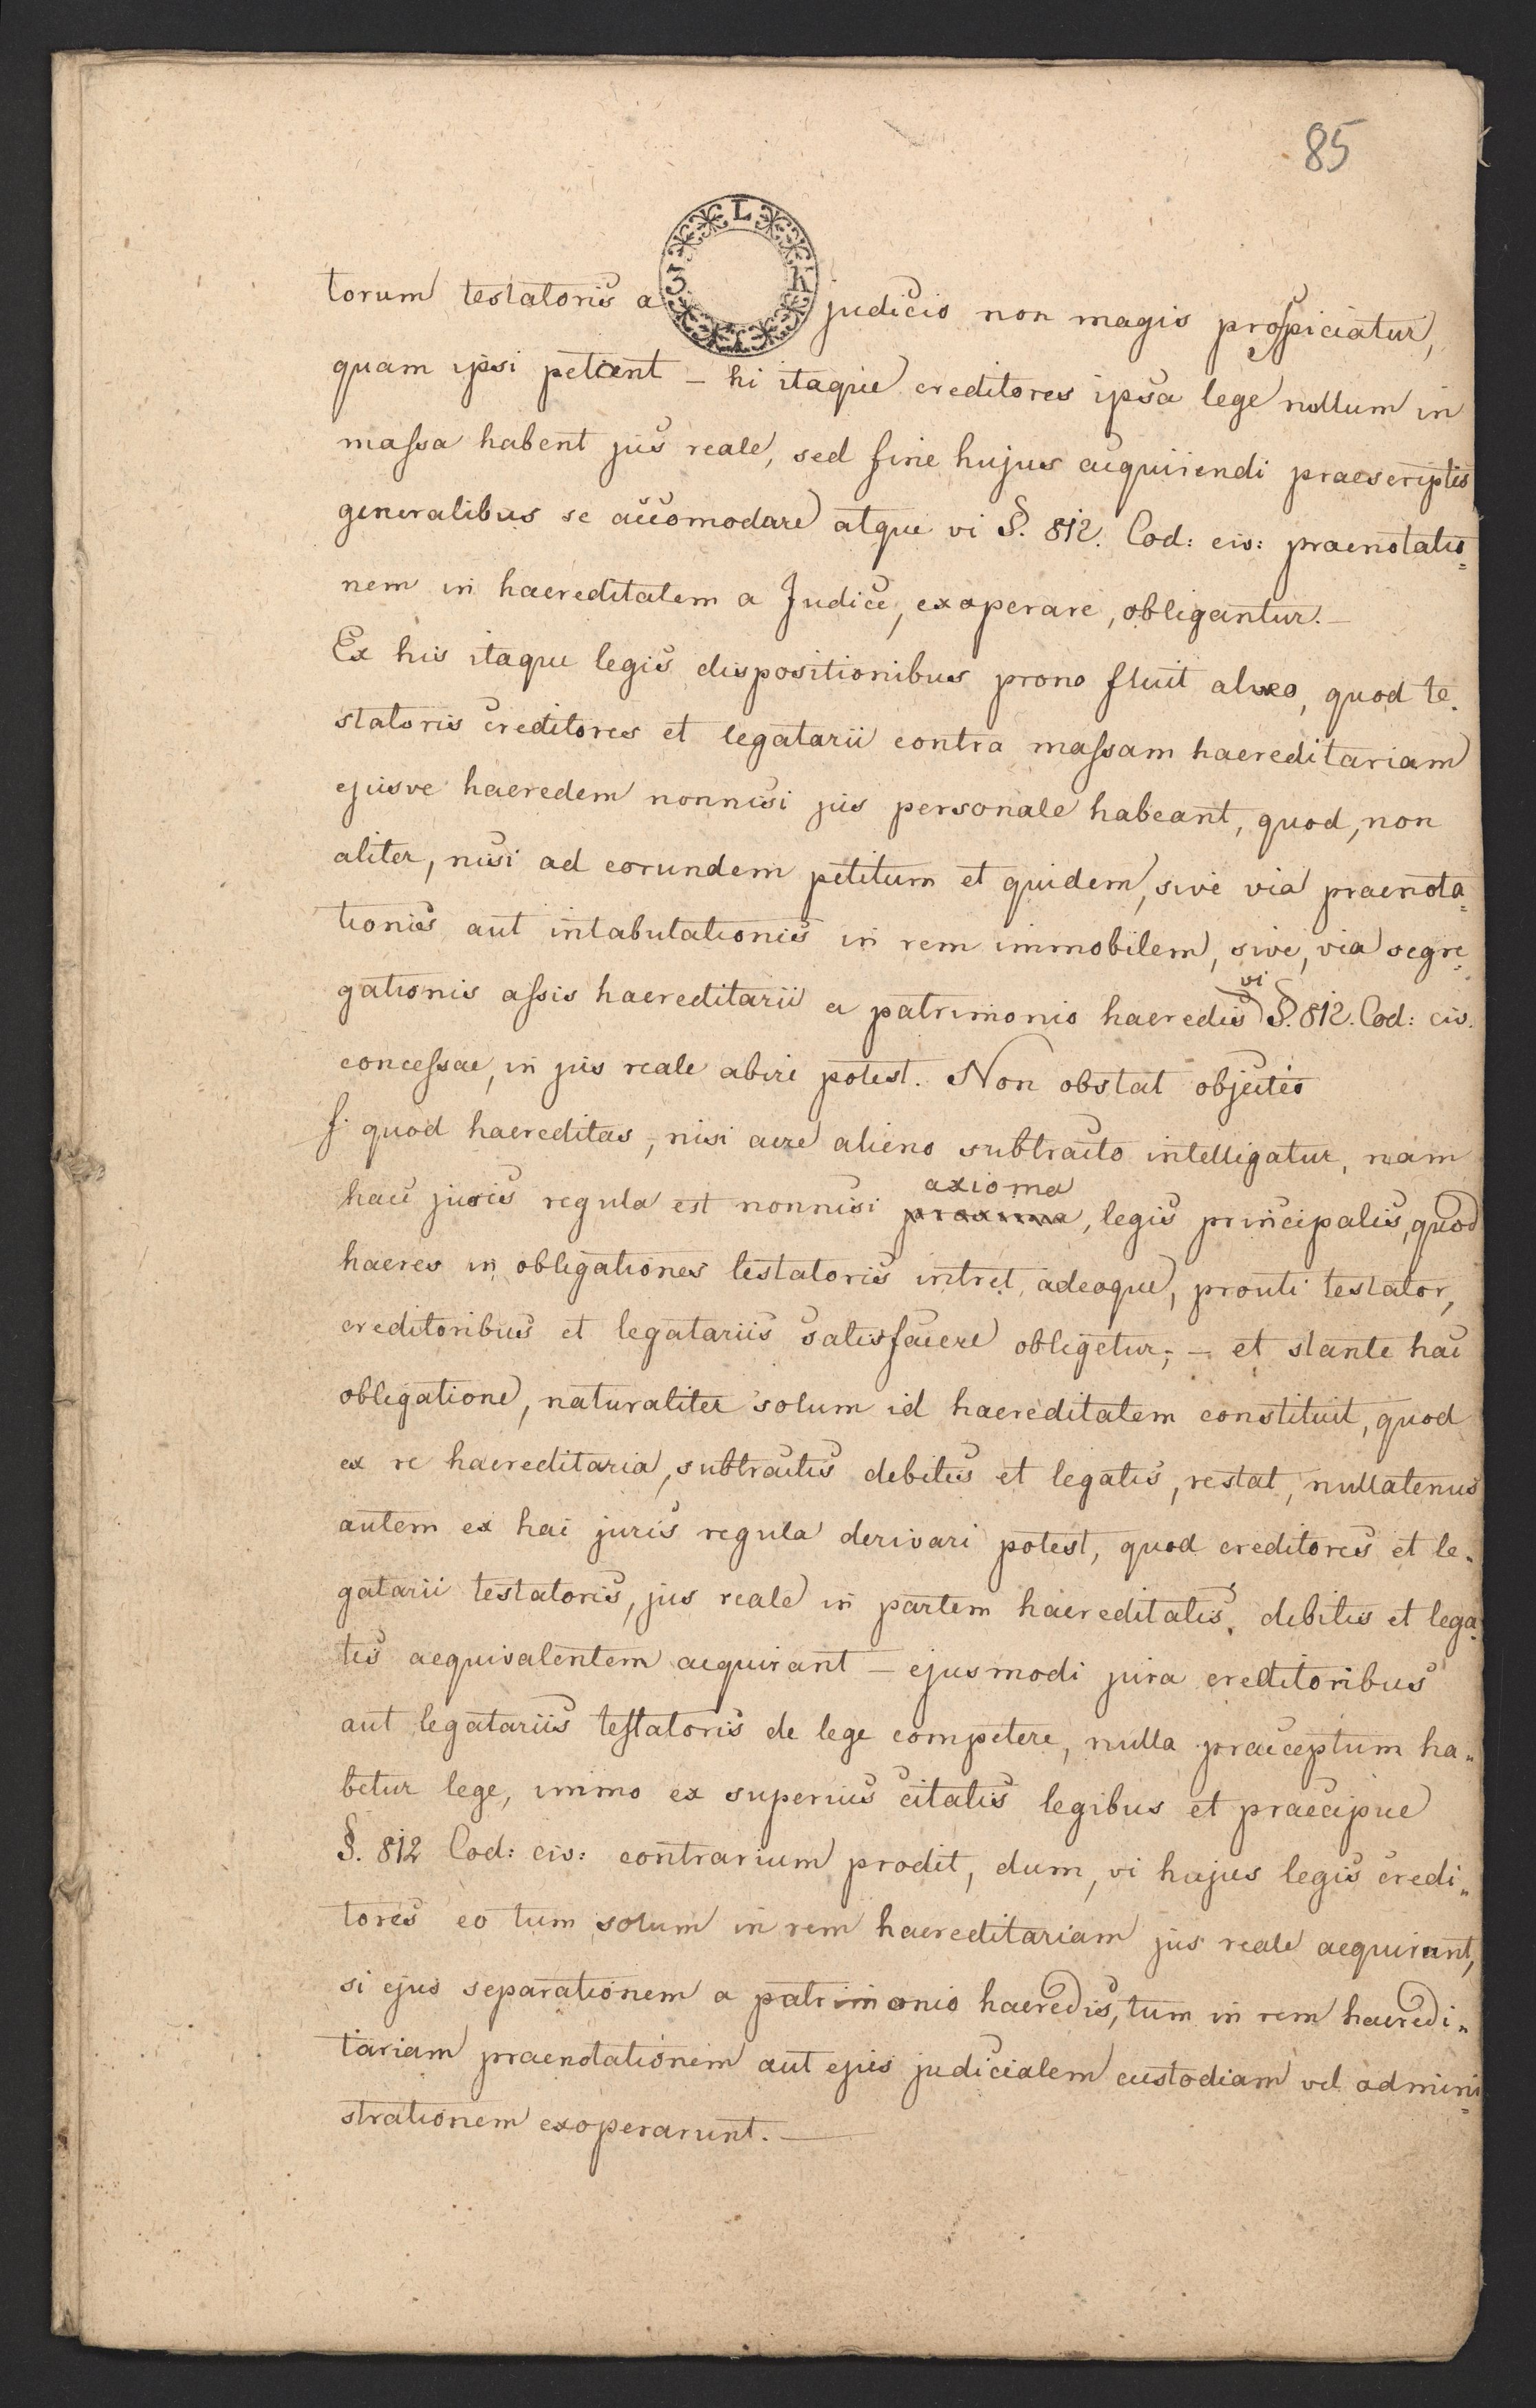 85
L
3 K
torum testatoris a judicio non magis prospiciatur,
quam ipsi petient – hi itaque creditores ipsa lege nullum in
massa habent jus reale, sed fine hujus acquirendi praescriptis
generalibus se accomodare atque vi §. 812. Cod: civ: praenotatio=
nem in haereditatem a Judice, exoperare, obligantur. –
Ex his itaque legis dispositionibus prono fluit alveo, quod te=
statoris creditores et legatarii contra massam haereditariam
ejusve haeredem nonnisi jus personale habeant, quod, non
aliter, nisi ad eorundem petitum et quidem, sive via praenota=
tionis aut intabulationis in rem immobilem, sive, via segre=
gationis assis haereditarii a patrimonio haeredis vi §. 812. Cod: civ.
concessae, in jus reale abire potest. Non obstat objectio
f. quod haereditas, nisi aere alieno subtracto intelligatur, nam
haec juris regula est nonnisi axioma, legis principalis, quod
haeres in obligationes testatoris intret, adeoque, prouti testator,
creditoribus et legatariis satisfacere obligetur; – et stante hac
obligatione, naturaliter solum id haereditatem constituit, quod
ex re haereditaria, subtractis debitis et legatis, restat, nullatenus
autem ex hac juris regula derivari potest, quod creditores et le=
gatarii testatoris, jus reale in partem haereditatis, debitis et lega=
tis aequivalentem acquirant – ejusmodi jura creditoribus
aut legatariis testatoris de lege competere, nulla praeceptum ha=
betur lege, immo ex superius citatis legibus et praecipue
§. 812 Cod: civ: contrarium prodit, dum, vi hujus legis credi=
tores eo tum solum in rem haereditariam jus reale acquirunt,
si ejus separationem a patrimonio haeredis, tum in rem haeredi=
tariam praenotationem aut ejus judicialem custodiam vel admini=
strationem exoperarunt. –